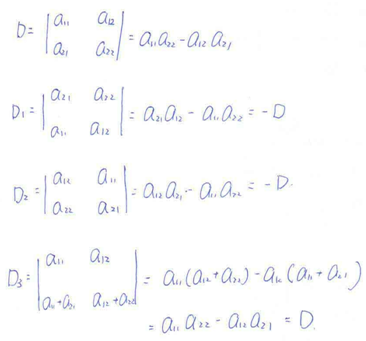 D = | a₁₁ a₁₂ |
| a₂₁ a₂₂ | = a₁₁a₂₂ - a₁₂a₂₁
D₁ = | a₂₁ a₂₂ |
| a₁₁ a₁₂ | = a₂₁a₁₂ - a₁₁a₂₂ = -D
D₂ = | a₁₂ a₁₁ |
| a₂₂ a₂₁ | = a₁₂a₂₁ - a₁₁a₂₂ = -D.
D₃ = | a₁₁ a₁₂ |
| a₁₁+a₂₁ a₁₂+a₂₂ | = a₁₁(a₁₂+a₂₂) - a₁₂(a₁₁+a₂₁)
= a₁₁a₂₂ - a₁₂a₂₁ = D.